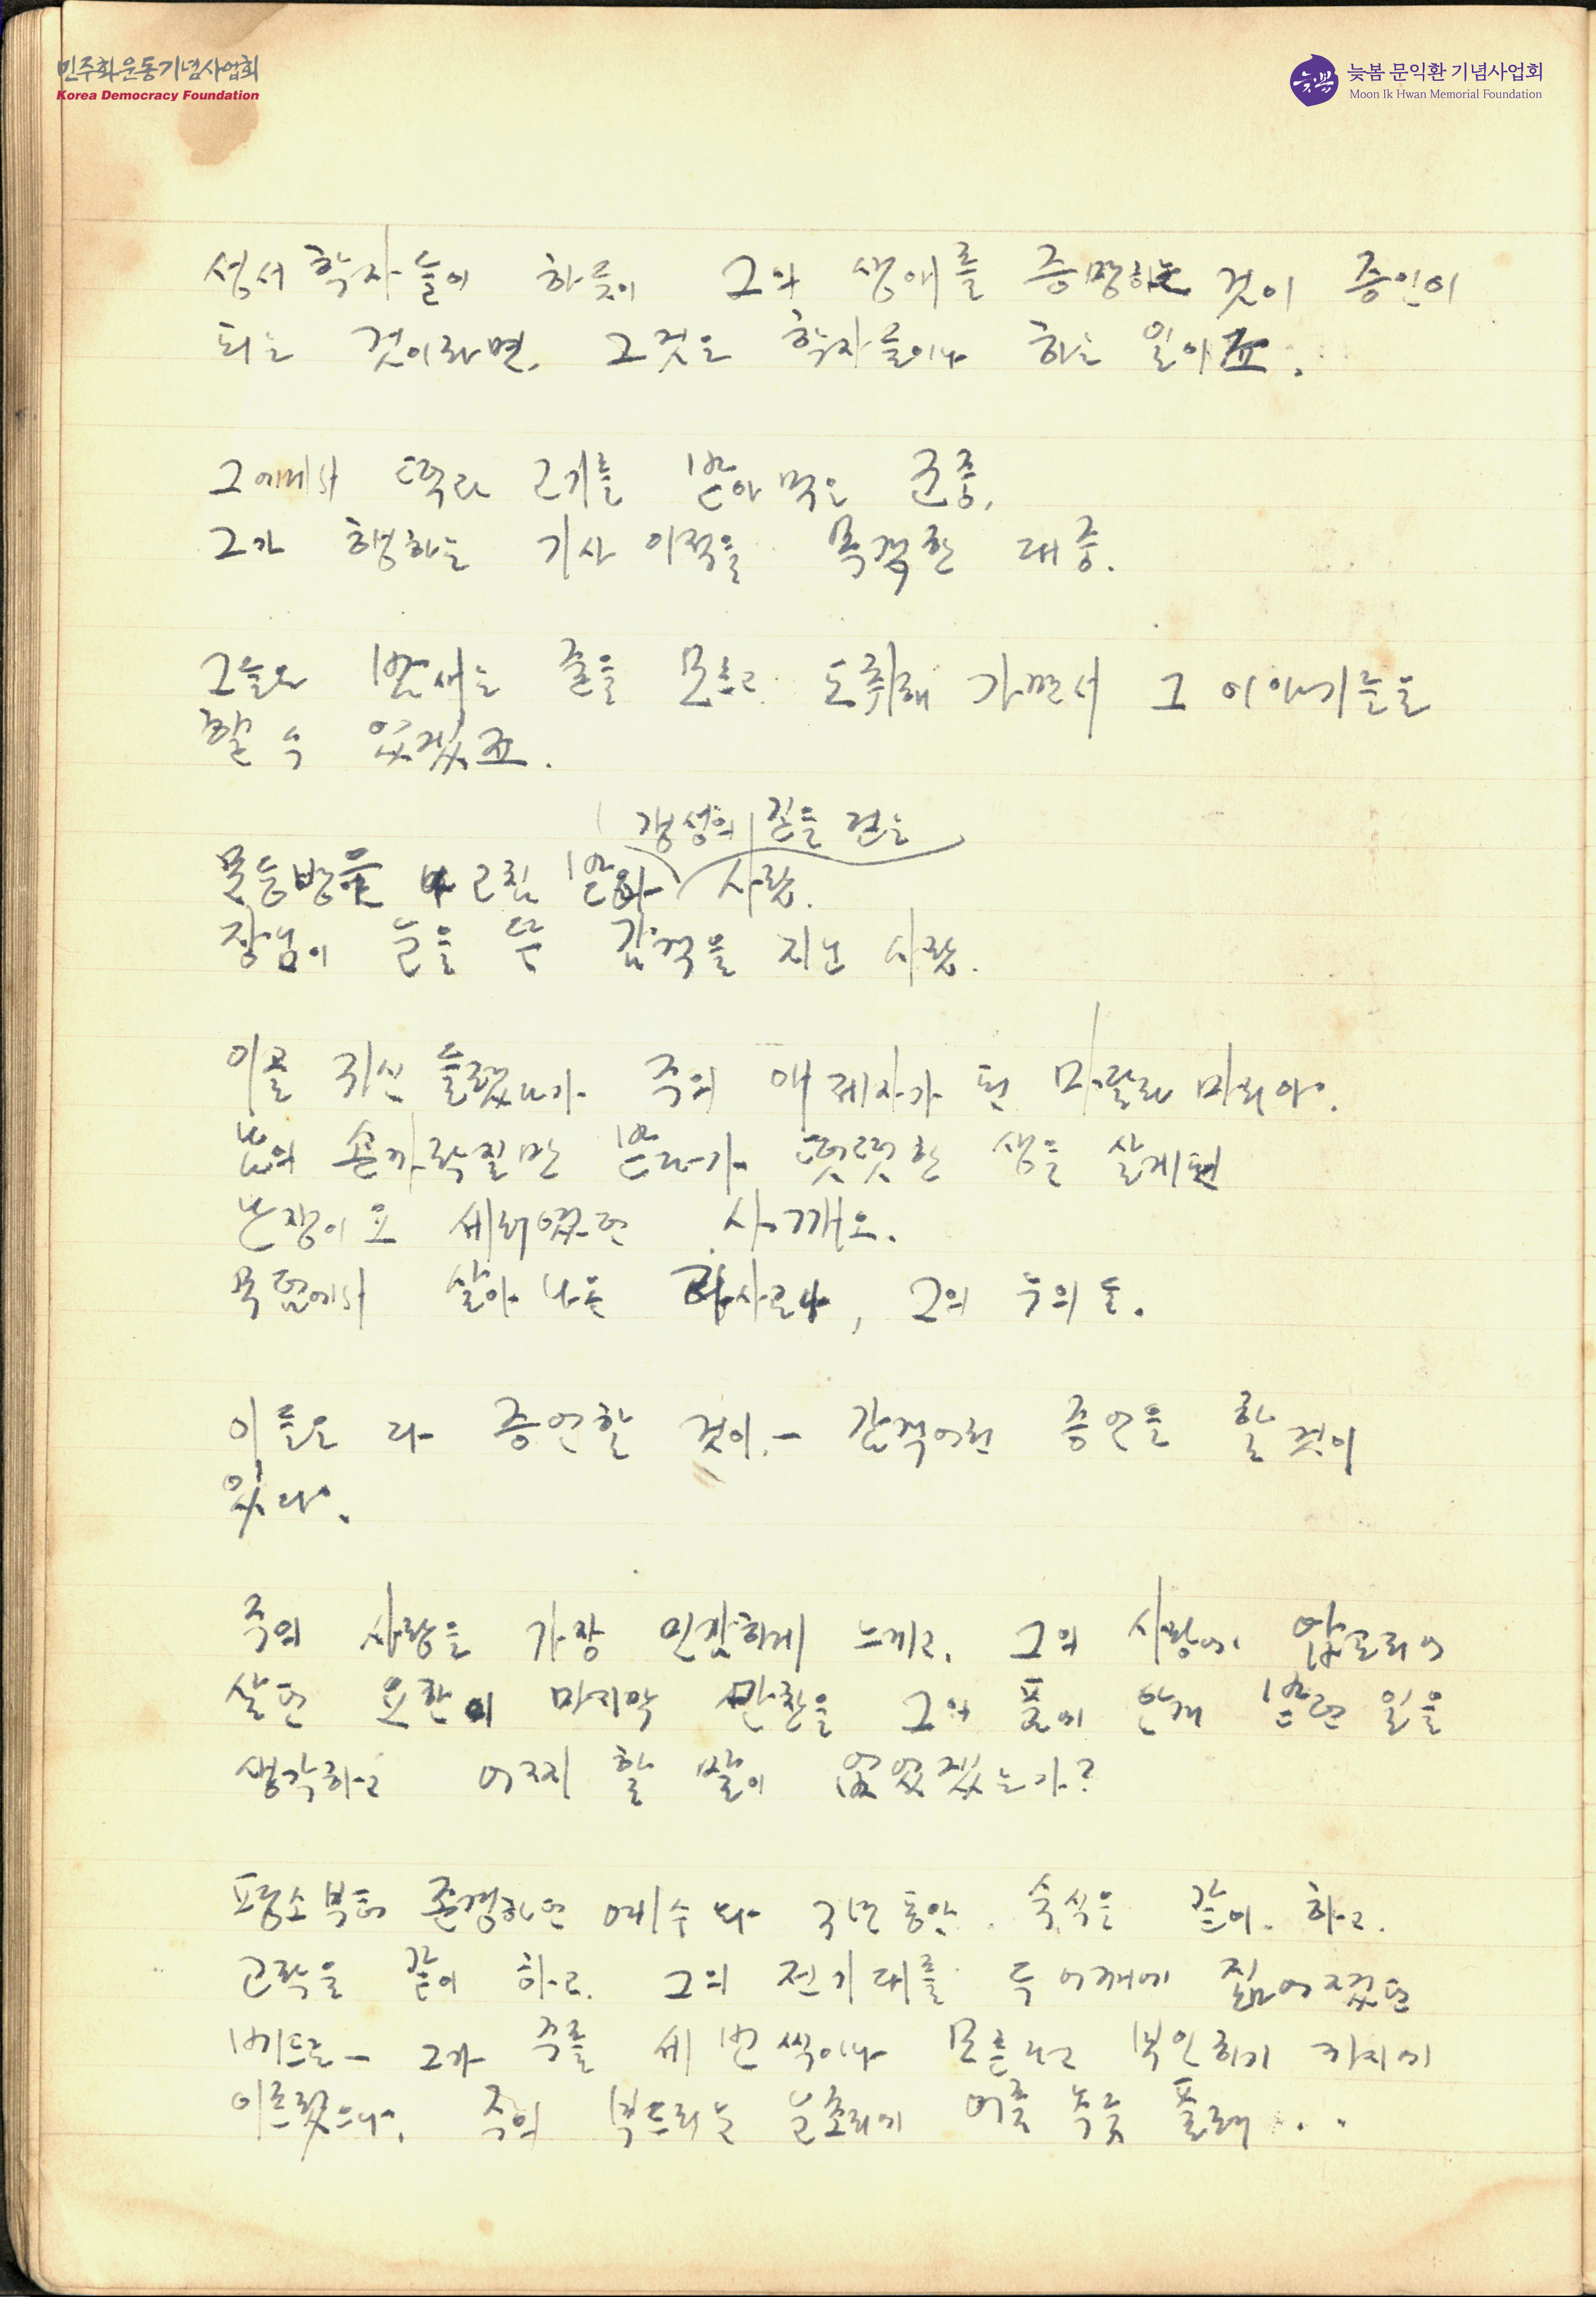 민주화운동기념사업회
Korea Democracy Foundation
늦봄 문익환 기념사업회
Moon Ik Hwan Memorial Foundation
성서 학자들이 하듯이 그의 생애를 증명하는 것이 증인이
되는 것이라면, 그것은 학자들이나 하는 일이죠.
그에게서 떡과 고기를 받아 먹은 군중,
그가 행하는 기사 이적을 목격한 대중.
그들은 밤새는 줄을 모르고 도취해 가면서 그 이야기들을
할 수 있겠죠.
갱생의 길을 걷는
고침 받아 사람.
장님이 눈을 뜬 감격을 지닌 사람.
일곱 귀신 들렸다가 주의 애제자가 된 막달라 마리아.
남의 손가락질만 받다가 떳떳한 생을 살게된
난쟁이요 세리였던 삭개오.
무덤에서 살아 나온 나사로나, 그의 누의들.
이들은 다 증언할 것이 – 감격어린 증언을 할 것이
있다.
주의 사랑을 가장 민감하게 느끼고, 그의 사랑에 압도되어
살던 요한이 마지막 만찬을 그의 품에 안겨 받던 일을
생각하고 어찌 할 말이 없었겠는가?
평소부터 존경하던 예수와 3년 동안 숙식을 같이 하고,
고락을 같이 하고, 그의 전 기대를 두 어깨에 짊어졌던
베드로 – 그가 주를 세 번씩이나 모른다고 부인하기 까지에
이르렀으나, 주의 부드러운 눈초리에 어름 녹듯 풀려 . .